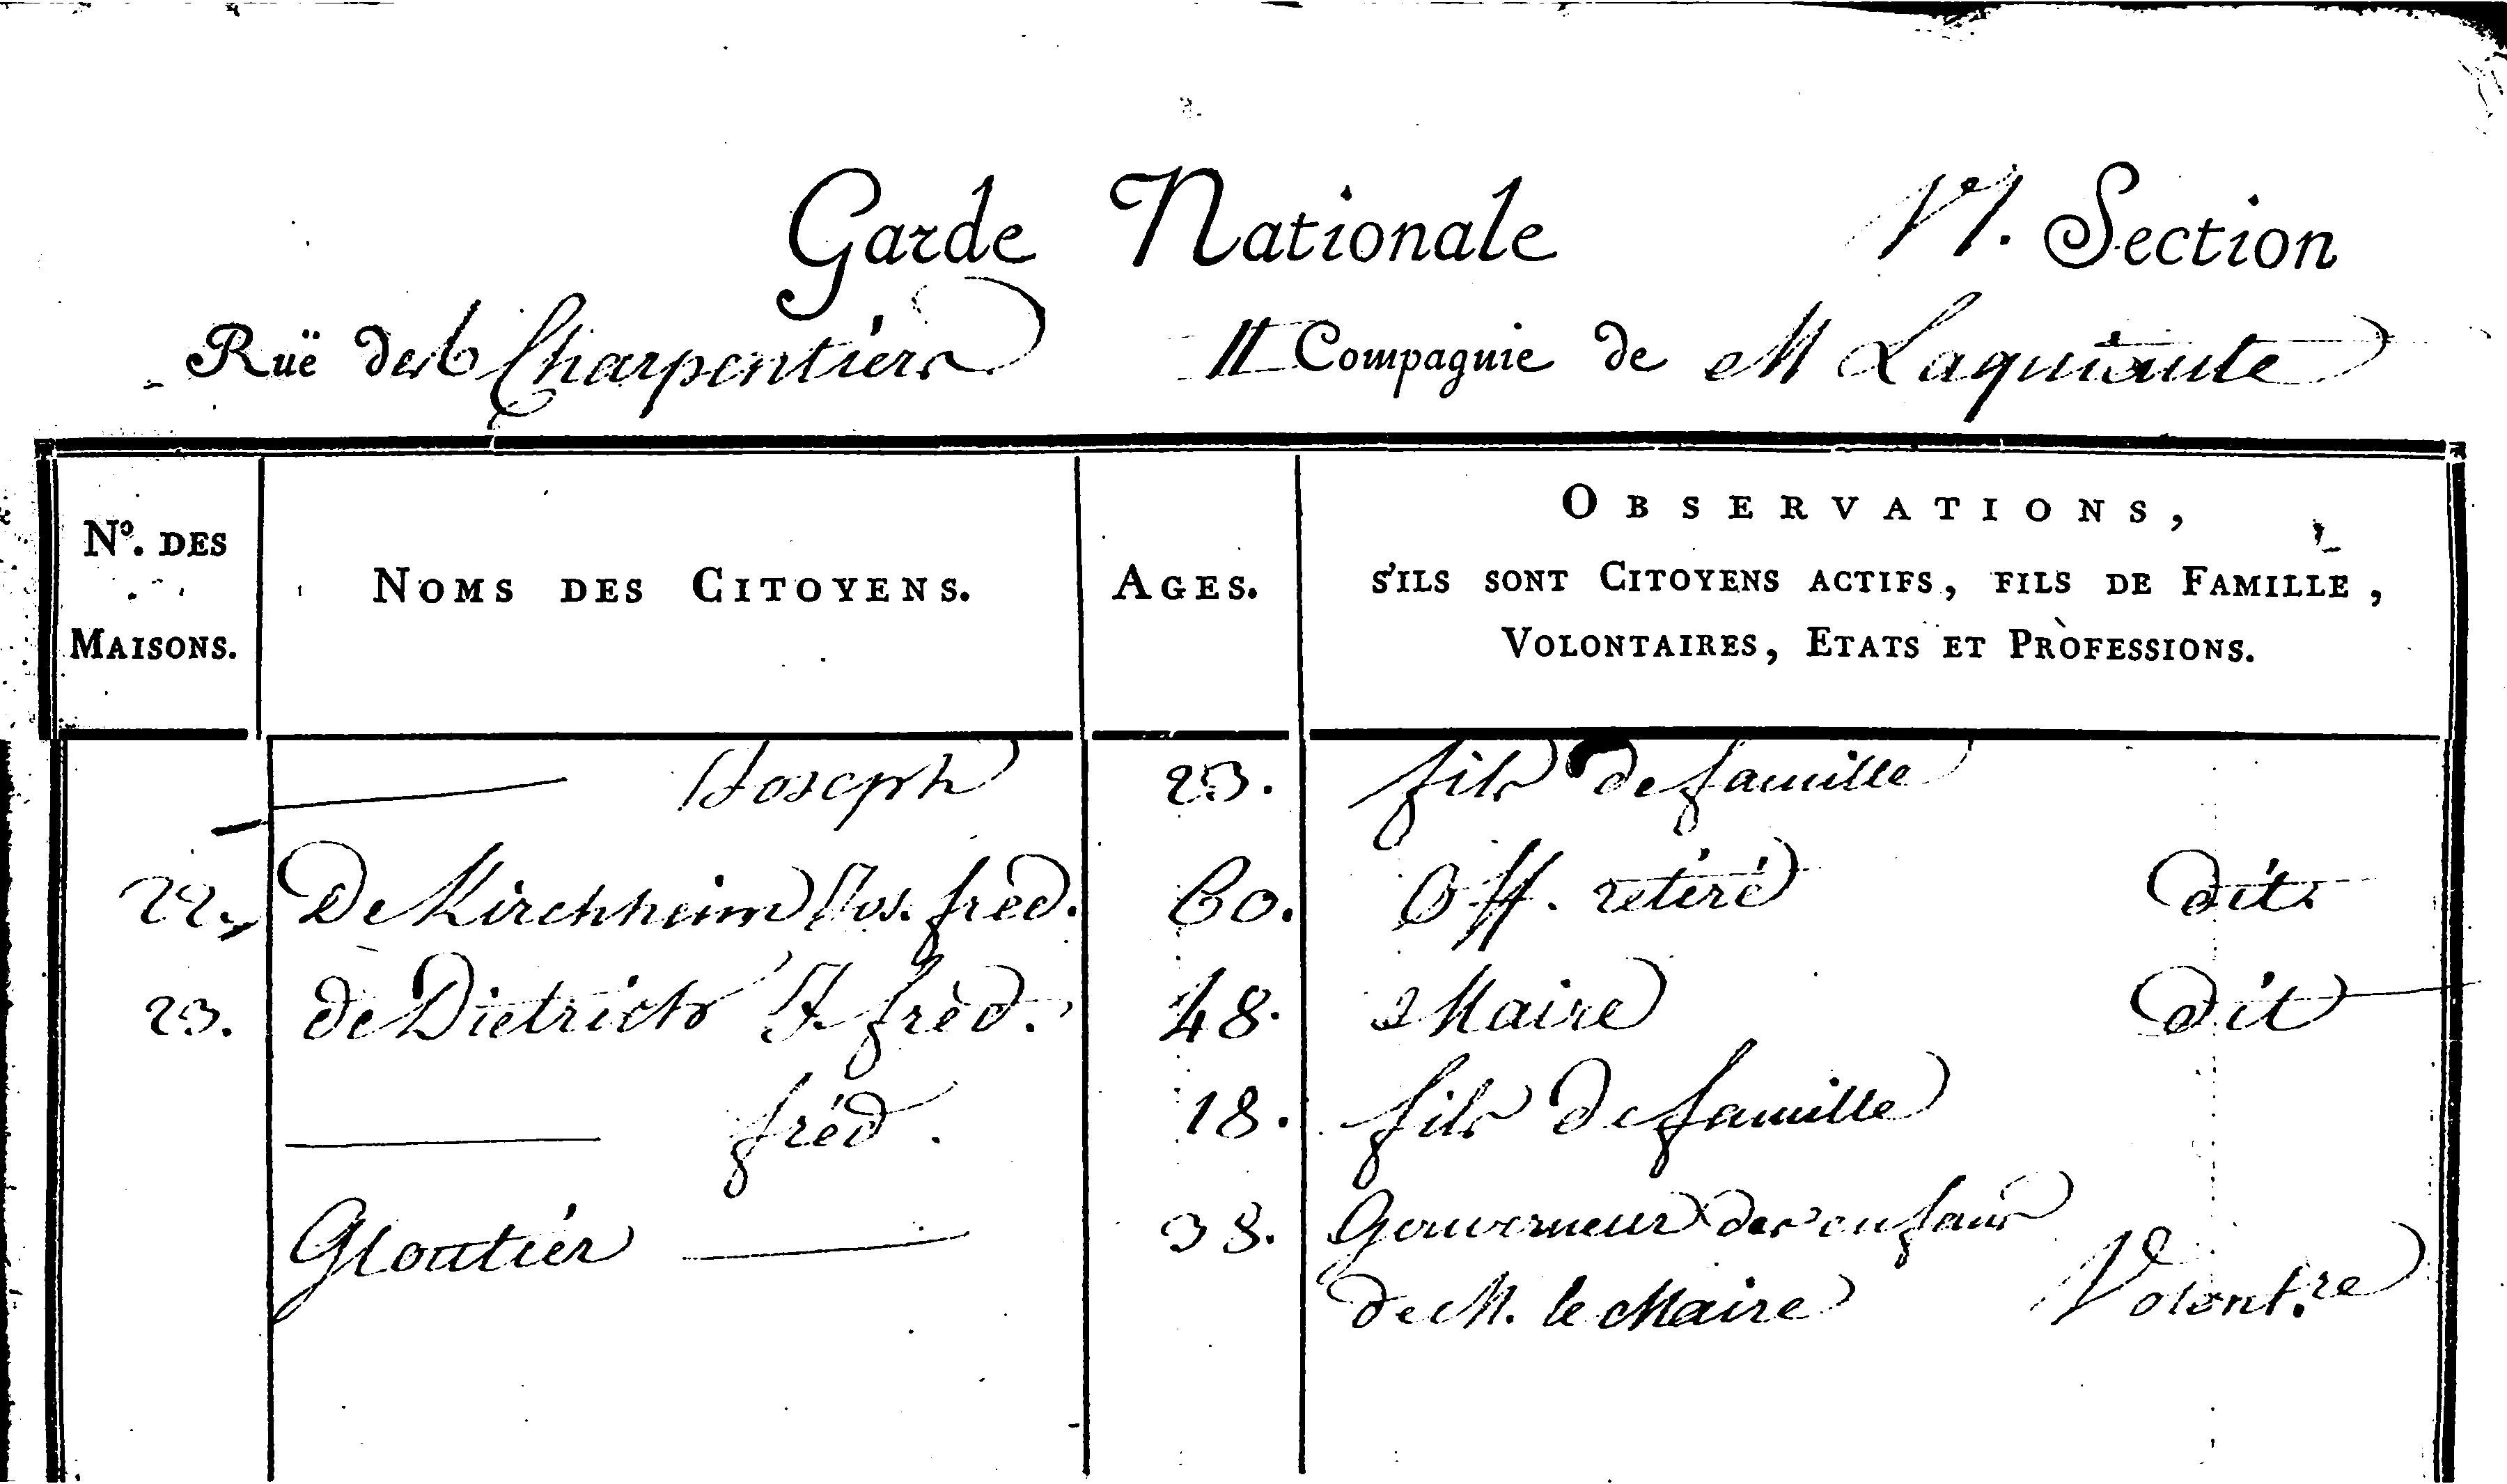 Garde Nationale VI. Section
Ruë des Charpentiers II Compagnie de M Laquiante
Nº. DES MAISONS. NOMS DES CITOYENS. AGES. OBSERVATIONS,
S'ILS SONT CITOYENS ACTIFS, FILS DE FAMILLE,
VOLONTAIRES, ETATS ET PROFESSIONS.
Joseph 23. fils de famille
22. De Kirchheim Jos. fréd. 60. Off. retiré dit.
23. de Dietrich fréd. 48. Maire dit
fréd. 18. fils de famille
Gloutier 38. Gouverneur des enfans
de M. le Maire Volont.re